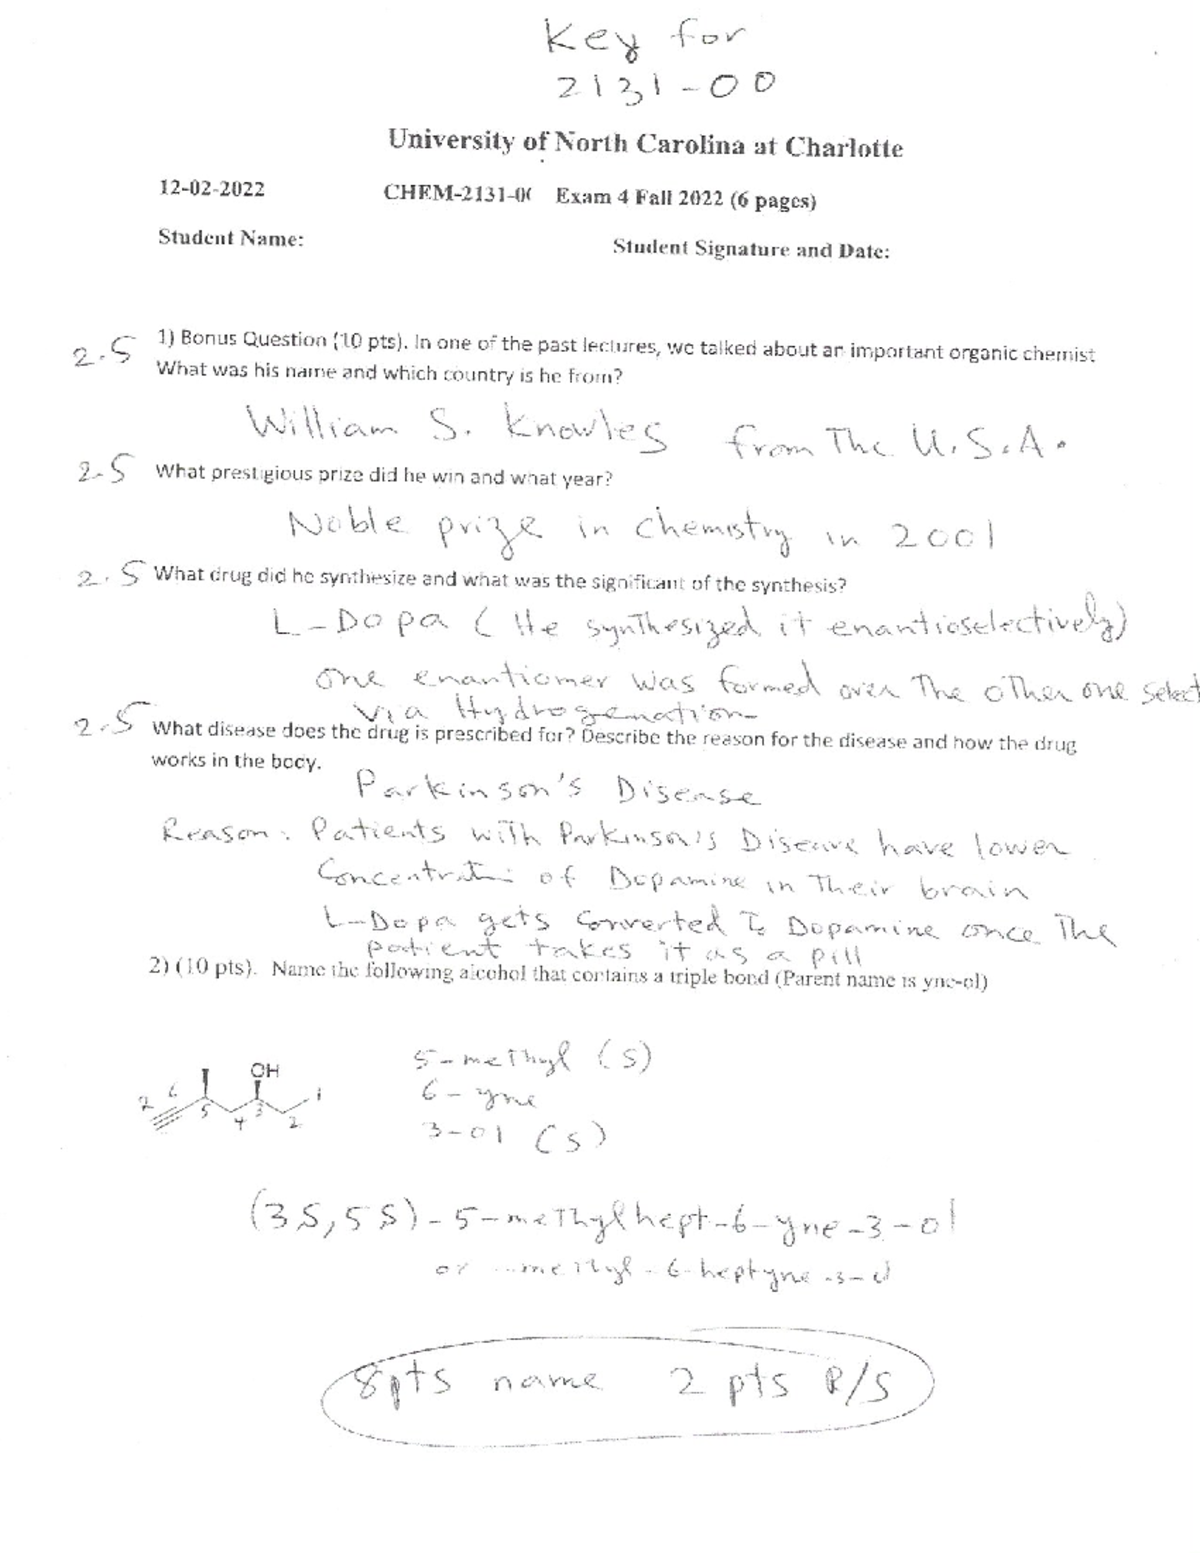 Key for
2131-00
University of North Carolina at Charlotte
12-02-2022 CHEM-2131-0( Exam 4 Fall 2022 (6 pages)
Student Name: Student Signature and Date:
2.5 1) Bonus Question (10 pts). In one of the past lectures, we talked about an important organic chemist
What was his name and which country is he from?
William S. Knowles from The U.S.A.
2.5 What prestigious prize did he win and what year?
Noble prize in chemistry in 2001
2.5 What drug did he synthesize and what was the significant of the synthesis?
L-Dopa ( He synthesized it enantioselectively)
one enantiomer was formed over The other one select
via Hydrogenation
2.5 What disease does the drug is prescribed for? Describe the reason for the disease and how the drug
works in the body.
Parkinson's Disease
Reason: Patients with Parkinson's Disease have lower
Concentration of Dopamine in Their brain
L-Dopa gets Converted To Dopamine once The
patient takes it as a pill
2) (10 pts). Name the following alcohol that contains a triple bond (Parent name is yne-ol)
OH
7 6 5 4 3 2 1
5-methyl (S)
6-yne
3-ol (S)
(3S,5S)-5-methylhept-6-yne-3-ol
or ...methyl-6-heptyne-3-ol
8pts name 2 pts R/S